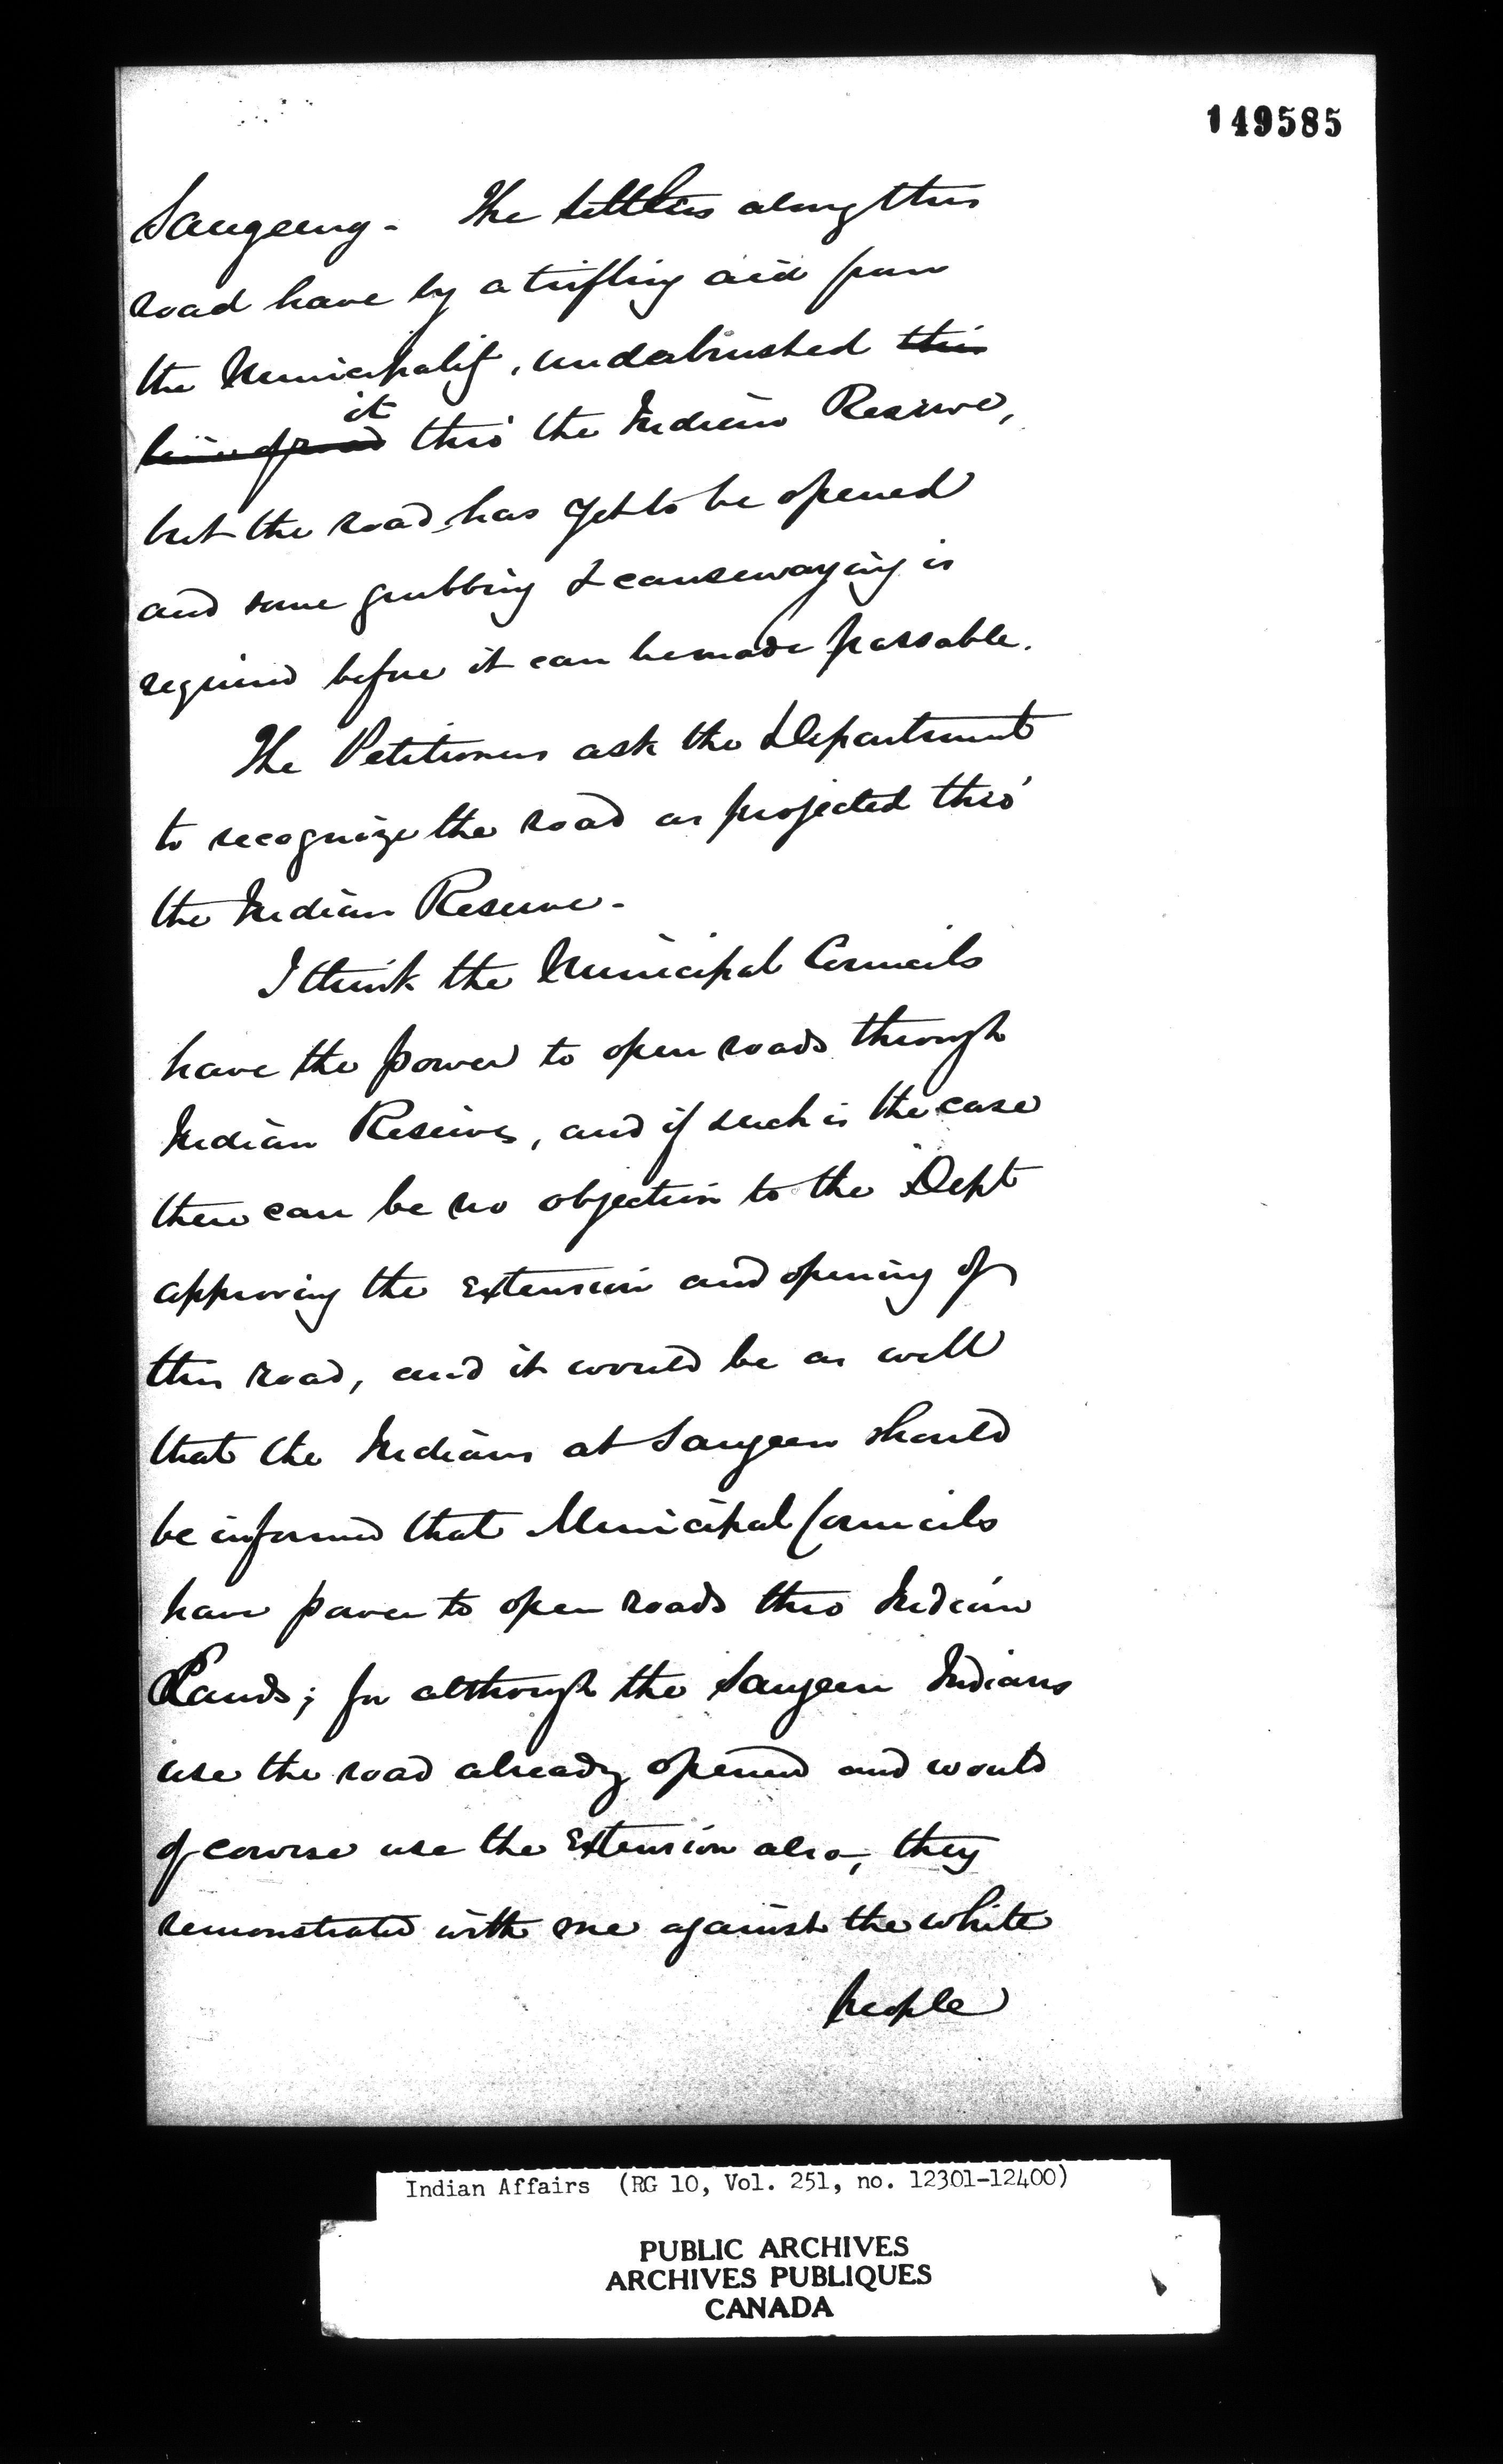 149585
Saugeeng - The settlers along this
road have by a trifling aid from
the Municipality, underbrushed this
line of road it thro' the Indian Reserve,
but the road has yet to be opened
and some grubbing & causewaying is
required before it can be made passable.
The Petitioners ask the Department
to recognize the road as projected thro'
the Indian Reserve -
I think the Municipal Councils
have the power to open roads through
Indian Reserves, and if such is the case
there can be no objection to the Dept
approving the extension and opening of
this road, and it would be as well
that the Indians at Saugeen should
be informed that Municipal Councils
have power to open roads thro Indian
Lands; for although the Saugeen Indians
use the road already opened and would
of course use the extension also, they
remonstrated with me against the white
people
Indian Affairs (RG 10, Vol. 251, no. 12301-12400)
PUBLIC ARCHIVES
ARCHIVES PUBLIQUES
CANADA